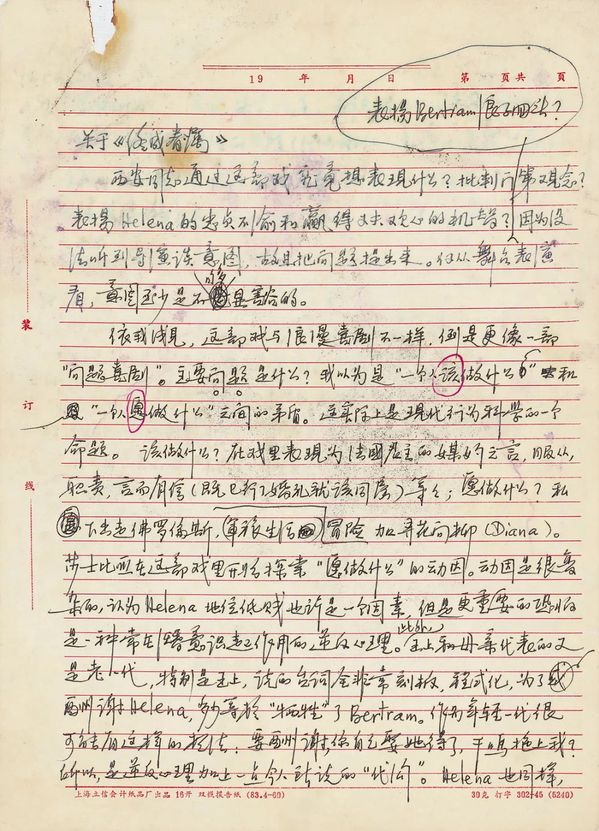 19 年 月 日 第 页共 页
表扬Bertram 浪子回头?
关于《终成眷属》
西安同志通过这部戏究竟想表现什么?批判门第观念?
表扬Helena的忠贞不渝和赢得丈夫欢心的机智?因为没
法听到导演谈意图,故且把问题提出来。但从舞台表演
看,意图至少是不够显著的。
依我浅见,这部戏与浪漫喜剧不一样,倒是更像一部
"问题喜剧"。主要问题是什么?我以为是"一个人该做什么"和
"一个人愿做什么"之间的矛盾。这实际上是现代行为科学的一个
命题。该做什么?在戏里表现为法国君主的媒妁之言,服从,
职责,言而有信(既已行了婚礼就该同房)等等;愿做什么?私
下出走佛罗伦斯,军旅生活 冒险 加寻花问柳(Diana)。
莎士比亚在这部戏里开始探索"愿做什么"的动因。动因是很复
杂的,认为Helena地位低贱也许是一个因素,但是更重要的恐怕
是一种常在潜意识起作用的逆反心理。此外,王上和母亲代表的又
是老一代,特别是王上,说的台词全非常刻板,程式化,为了
酬谢Helena,竟"牺牲"了Bertram。作为年轻一代很
可能有这样的想法:要酬谢,你自己娶她得了,干吗拖上我?
所以,是逆反心理加上一点个人所说的"代沟"。Helena也同样,
装
订
线
上海立信会计纸品厂出品 16开 双线报告纸 (83.4-60) 30克 打字 302-45 (5240)